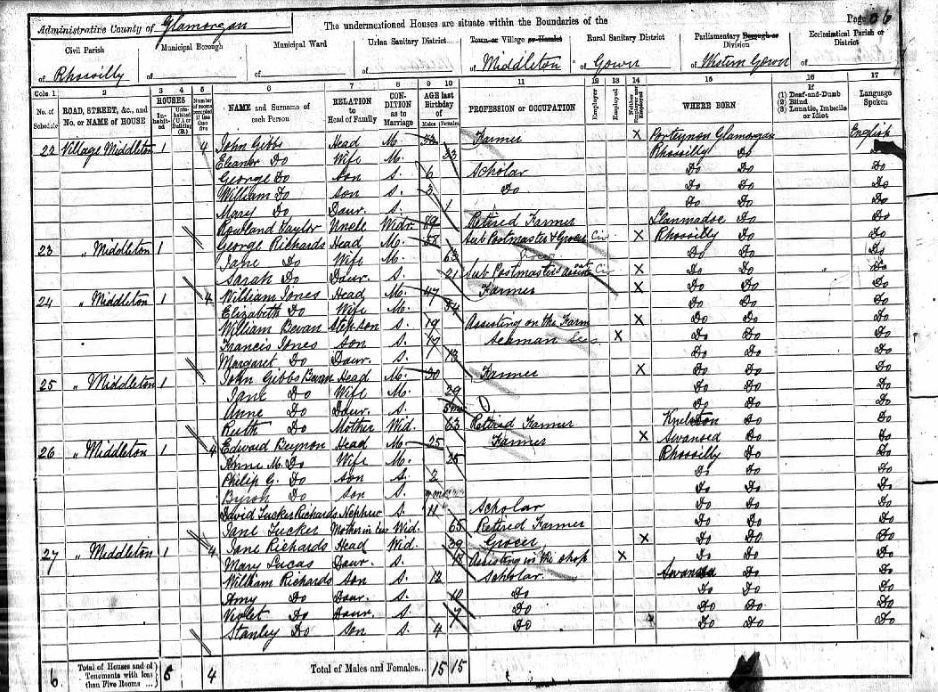 Administrative County of Glamorgan The undermentioned Houses are situate within the Boundaries of the Page 26
Civil Parish Municipal Borough Municipal Ward Urban Sanitary District Town or Village or Hamlet Rural Sanitary District Parliamentary Borough or Division Ecclesiastical Parish or District
of Rhossilly of of of of Middleton of Gower of Western Gower of
Cols 1 2 3 4 5 6 7 8 9 10 11 12 13 14 15 16 17
No. of Schedule ROAD, STREET, &c., and No. or NAME of HOUSE HOUSES Inhabited Uninhabited (U.) or Building (B.) Number of rooms occupied if less than five NAME and Surname of each Person RELATION to Head of Family CONDITION as to Marriage AGE last Birthday of Males Females PROFESSION or OCCUPATION Employer Employed Neither WHERE BORN If (1) Deaf-and-Dumb (2) Blind (3) Lunatic, Imbecile or Idiot Language Spoken
22 Village Middleton 1 4 John Gibbs Head M. Farmer X Porteynon Glamorgan English
Eleanor Do Wife M. 33 Rhossilly Do Do
George Do Son S. 6 Scholar Do Do Do
William Do Son S. 3 Do Do Do Do
Mary Do Daur. S. 1 Do Do Do
Rowland Taylor Uncle Widr. Retired Farmer Llanmadoc Do Do
23 " Middleton 1 George Richards Head M. Sub Postmaster & Grocer X Rhossilly Do Do
Jane Do Wife M. 63 Do Do Do
Sarah Do Daur. S. 21 Sub Postmaster's X Do Do Do
24 " Middleton 1 4 William Jones Head M. 47 Farmer X Do Do Do
Elizabeth Do Wife M. 54 Do Do Do
William Bevan Stepson S. 19 Assisting on the Farm X Do Do Do
Francis Jones Son S. 17 X Do Do Do
Margaret Do Daur. S. 13 Do Do Do
25 " Middleton 1 John Gibbs Bevan Head M. 30 Farmer X Do Do Do
Jane Do Wife M. 29 Do Do Do
Anne Do Daur. S. Do Do Do
Ruth Do Mother Wid. 63 Retired Farmer Knelston Do Do
26 " Middleton 1 4 Edward Beynon Head M. 25 Farmer X Swansea Do Do
Anne M. Do Wife M. 25 Rhossilly Do Do
Philip G. Do Son S. 2 Do Do Do
Byron Do Son S. Do Do Do
David Tucker Richards Nephew S. 11 Scholar Do Do Do
Jane Tucker Mother in law Wid. 65 Retired Farmer Do Do Do
27 " Middleton 1 4 Jane Richards Head Wid. 39 Grocer X Do Do Do
Mary Lucas Daur. S. Assisting in the shop X Do Do Do
William Richards Son S. 12 Scholar Swansea Do Do
Amy Do Daur. S. 10 Do Do Do Do
Violet Do Daur. S. 7 Do Do Do Do
Stanley Do Son S. 4 Do Do Do Do
6 Total of Houses and of Tenements with less than Five Rooms ... 4 Total of Males and Females... 15 15